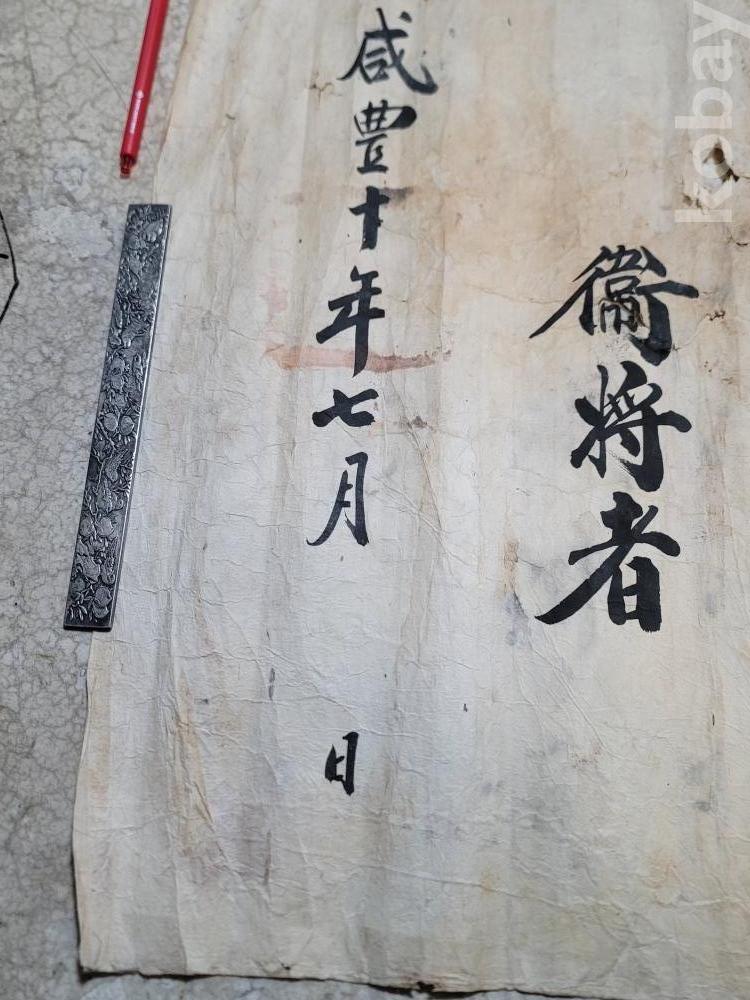 衛將者
咸豊十年七月
日
kobay